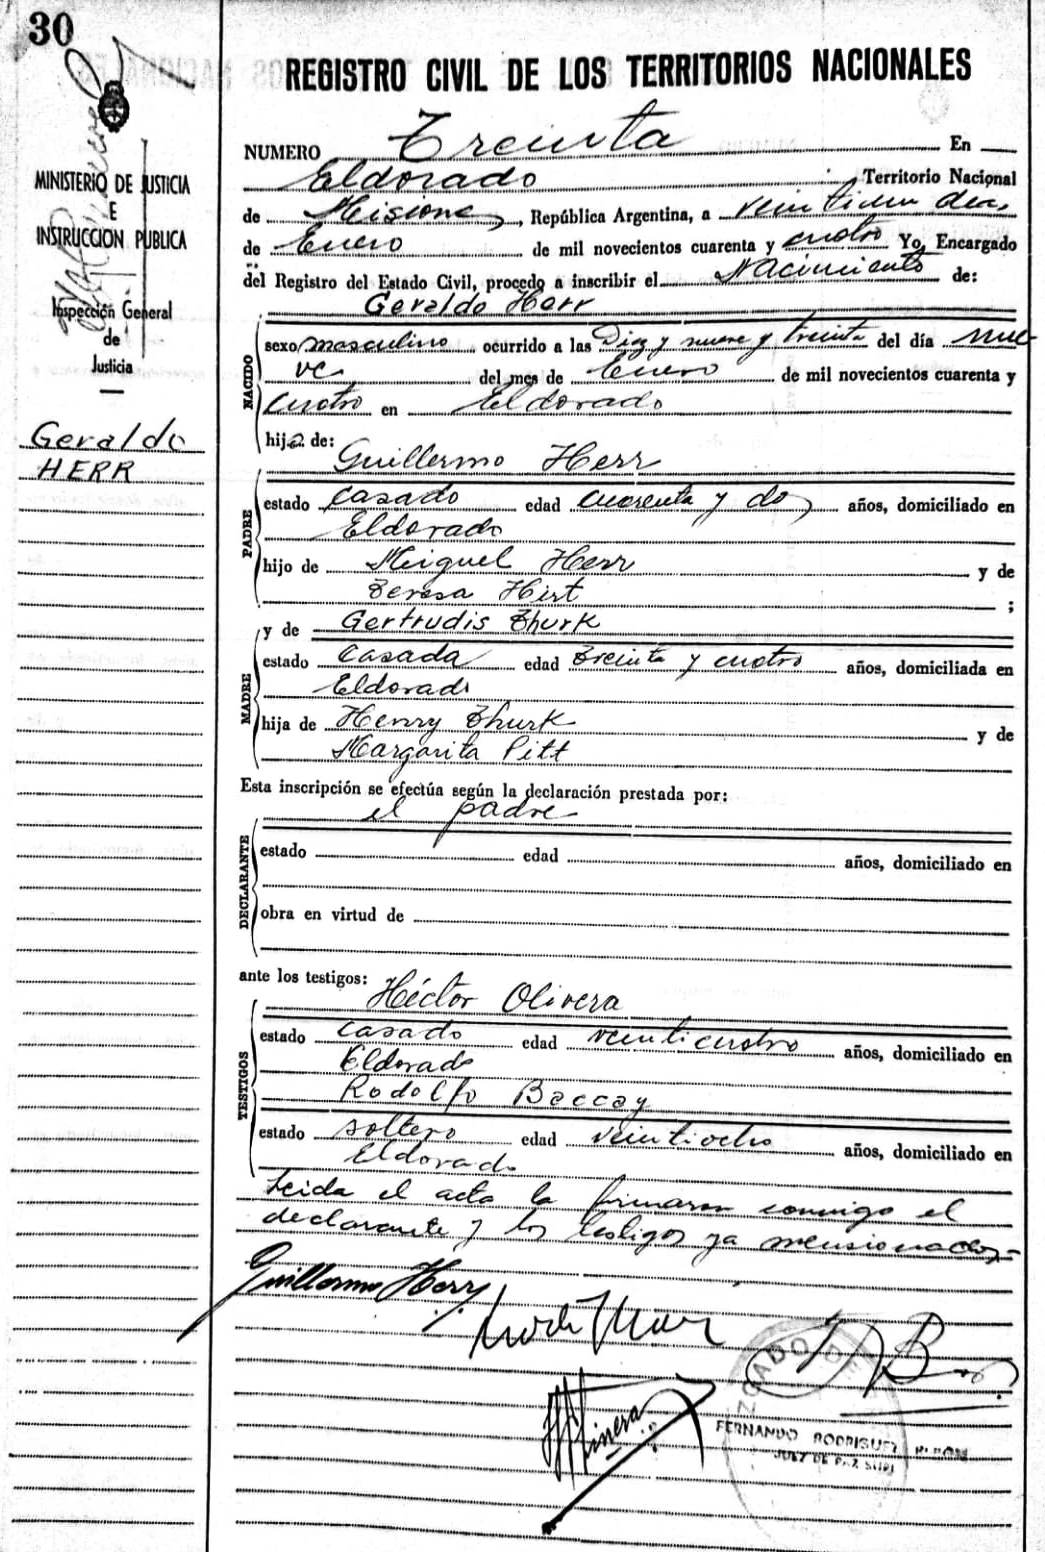 30
REGISTRO CIVIL DE LOS TERRITORIOS NACIONALES
MINISTERIO DE JUSTICIA
E
INSTRUCCION PUBLICA
Inspección General
de
Justicia
Geraldo
HERR
NUMERO Treinta En
Eldorado Territorio Nacional
de Misiones, República Argentina, a
de Enero de mil novecientos cuarenta y cuatro Yo, Encargado
del Registro del Estado Civil, procedo a inscribir el Nacimiento de:
Geraldo Herr
NACIDO
sexo masculino ocurrido a las Diez y nueve y treinta del día nue-
ve del mes de Enero de mil novecientos cuarenta y
cuatro en Eldorado
hijo de:
Guillermo Herr
PADRE
estado casado edad cuarenta y dos años, domiciliado en
Eldorado
hijo de Miguel Herr y de
Teresa Hirt ;
y de Gertrudis Thurk
MADRE
estado casada edad treinta y cuatro años, domiciliada en
Eldorado
hija de Henry Thurk y de
Margarita Pitt
Esta inscripción se efectúa según la declaración prestada por:
el padre
DECLARANTE
estado edad años, domiciliado en
obra en virtud de
ante los testigos:
Héctor Olivera
TESTIGOS
estado casado edad veinticuatro años, domiciliado en
Eldorado
Rodolfo Baccay
estado soltero edad veintiocho años, domiciliado en
Eldorado
Leida el acta la firmaron conmigo el
declarante y los testigos ya mensionados-
Guillermo Herr
FERNANDO RODRIGUEZ
JUEZ DE PAZ SUPL